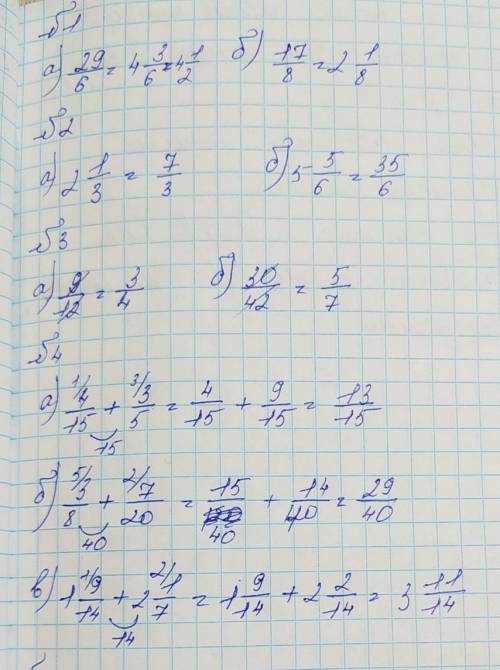 №1
а) 29/6 = 4 3/6 = 4 1/2 б) 17/8 = 2 1/8
№2
а) 2 1/3 = 7/3 б) 5 5/6 = 35/6
№3
а) 9/12 = 3/4 б) 30/42 = 5/7
№4
а) 1/ 4/15 + 3/ 3/5 = 4/15 + 9/15 = 13/15
15
б) 5/ 3/8 + 2/ 7/20 = 15/40 + 14/40 = 29/40
40
в) 1 1/ 9/14 + 2 2/ 1/7 = 1 9/14 + 2 2/14 = 3 11/14
14